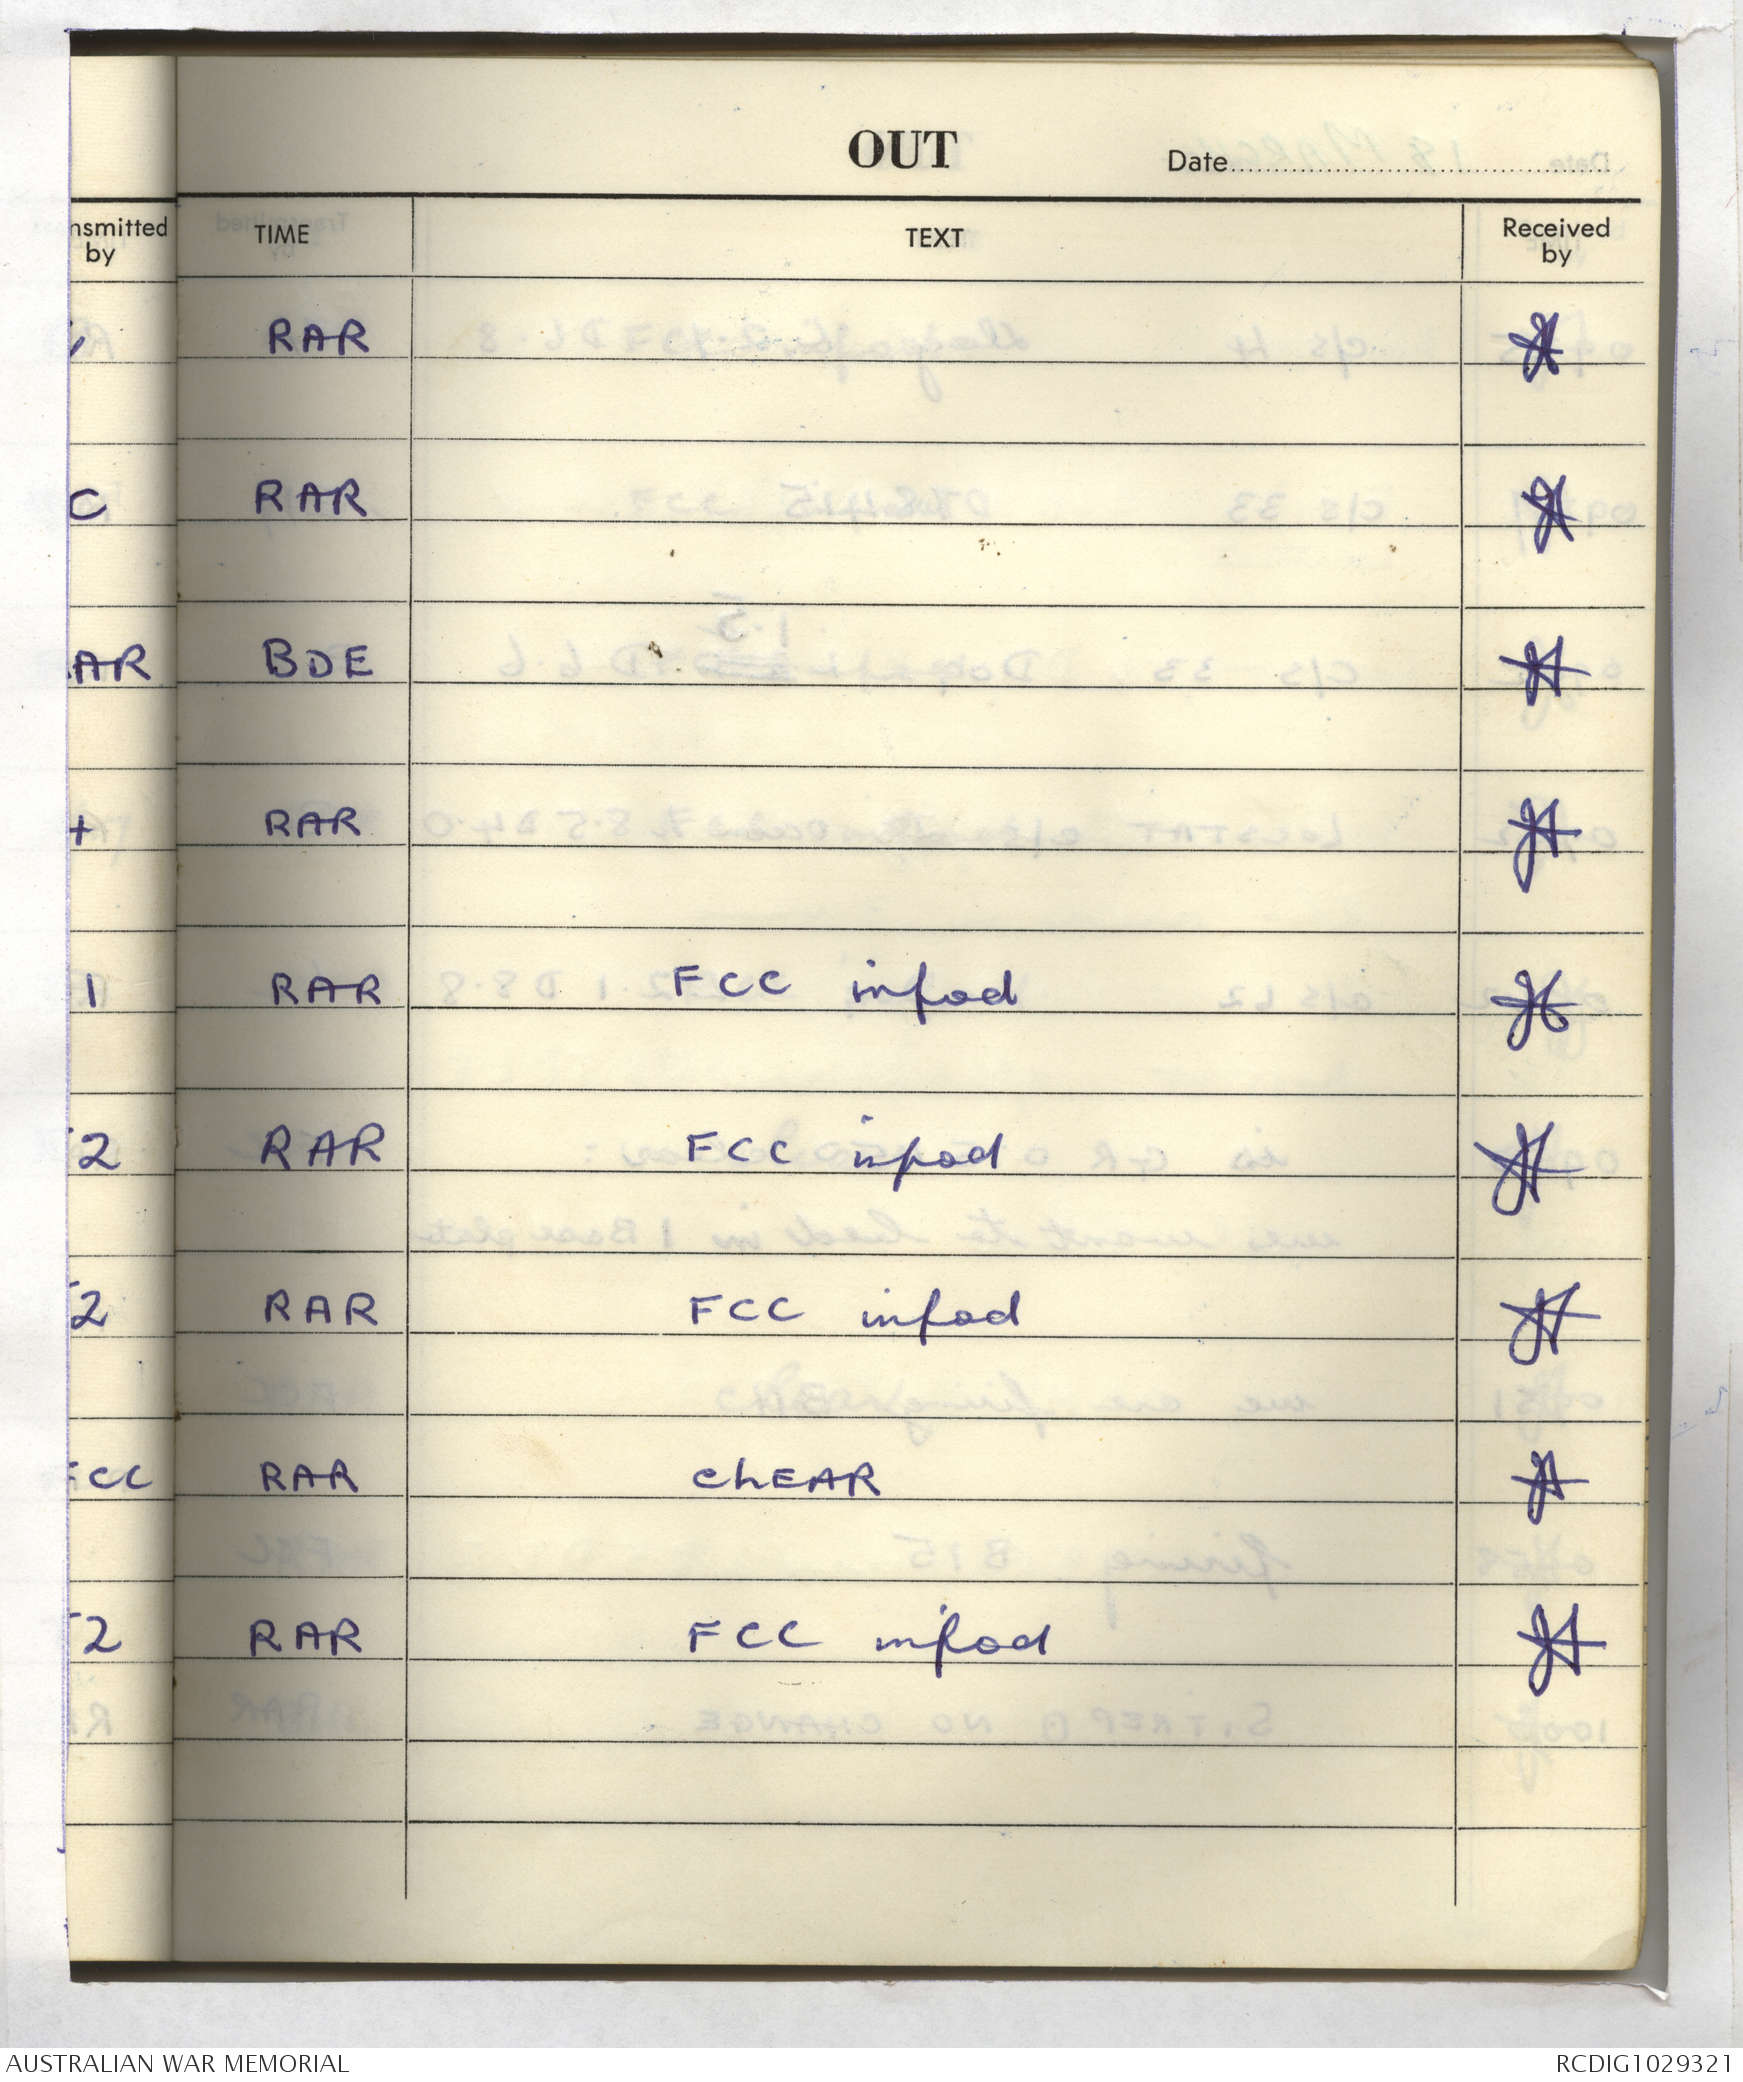 OUT
Date
nsmitted by
TIME
TEXT
Received by
RAR
C RAR
AR BDE
RAR
1 RAR FCC infod
2 RAR FCC infod
2 RAR FCC infod
FCC RAR CLEAR
2 RAR FCC infod
AUSTRALIAN WAR MEMORIAL
RCDIG1029321